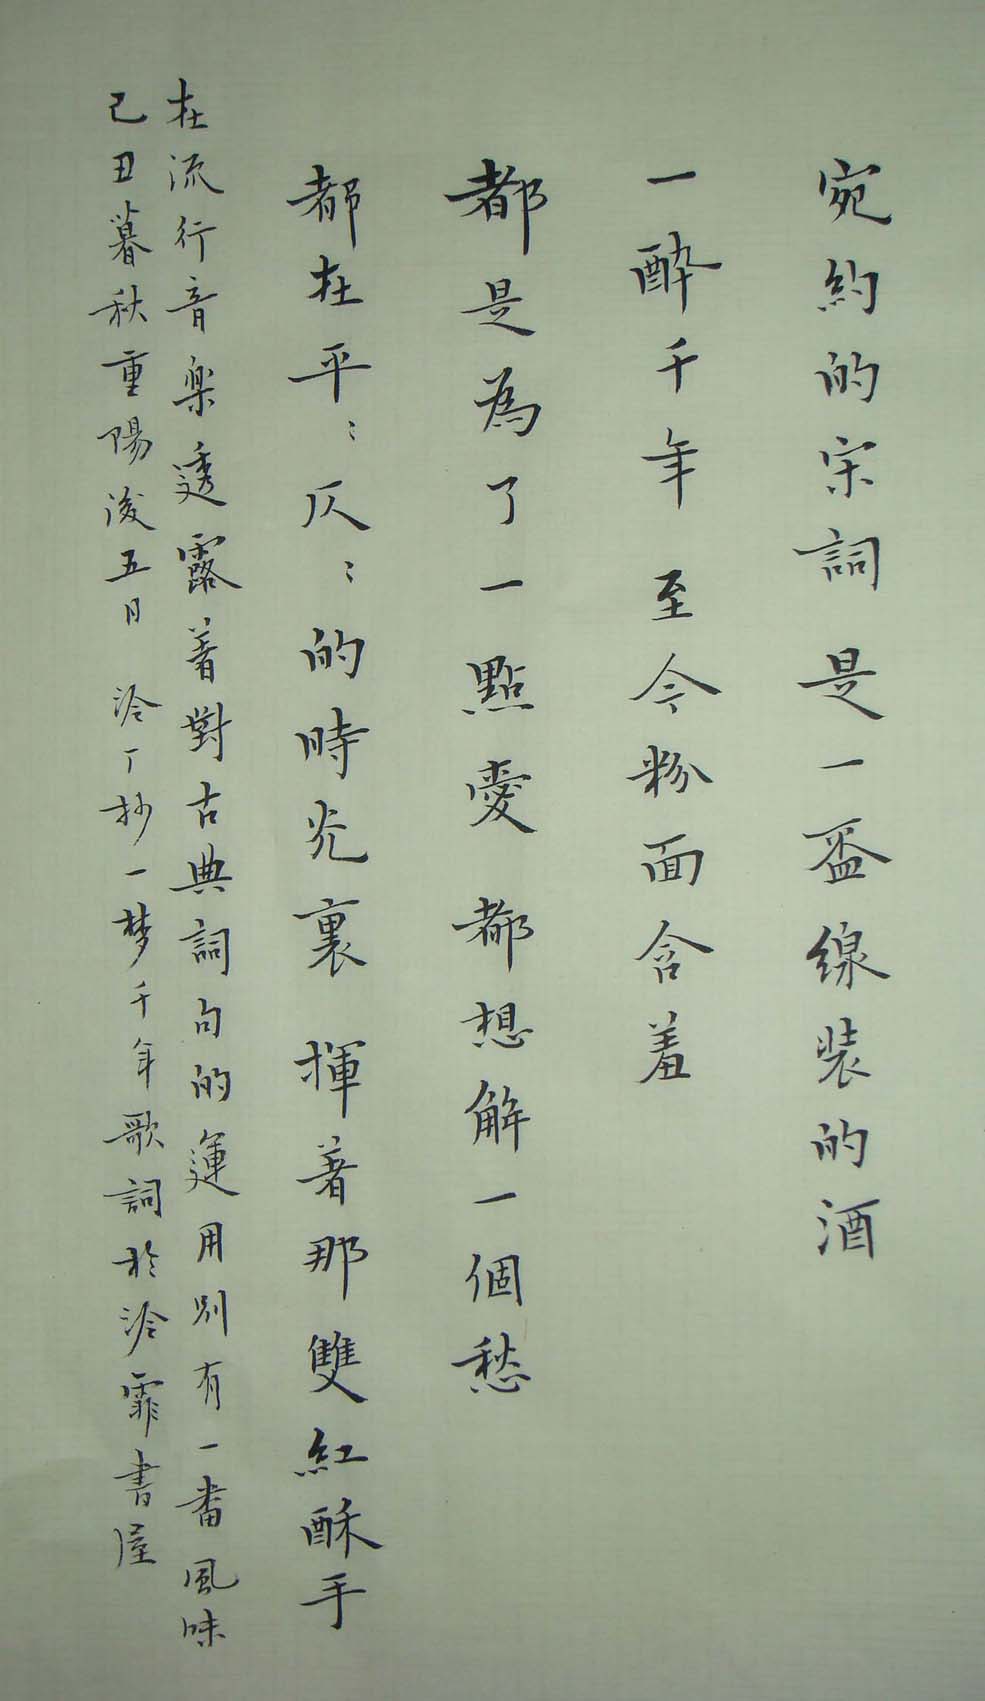 宛約的宋詞 是一盃線裝的酒
一醉千年 至今粉面含羞
都是為了一點愛 都想解一個愁
都在平〻仄〻的時光裏 揮著那雙紅酥手
在流行音樂透露著對古典詞句的運用別有一番風味
己丑暮秋重陽後五日 泠丁抄一梦千年歌詞於泠霏書屋